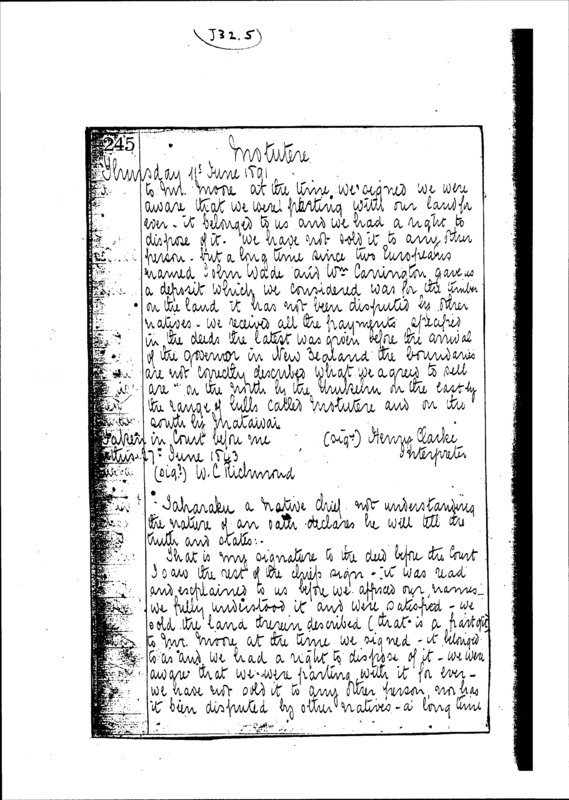 J32.5
245
Motutere
Thursday 11th June 1891
to Mr. Moore at the time we signed we were
aware that we were parting with our land for
ever - it belonged to us and we had a right to
dispose of it. We have not sold it to any other
person - but a long time since two Europeans
named John Wade and Wm Carrington gave us
a deposit which we considered was for the timber
on the land it has not been disputed by other
natives - we received all the payments specified
in the deeds the latest was given before the arrival
of the governor in New Zealand the boundaries
are not correctly described what we agreed to sell
are "on the north by the on the east by
the range of hills called Motutere and on the
south by Matawai
Taken in Court before me (sigd) Henry Clarke
27th June 1843 Interpreter
(sigd) W. C. Richmond
Taharaku a native chief not understanding
the nature of an oath declares he will tell the
truth and states:-
That is my signature to the deed before the Court
I saw the rest of the chiefs sign - it was read
and explained to us before we affixed our names -
we fully understood it and were satisfied - we
sold the land therein described (that is a part of it)
to Mr. Moore at the time we signed - it belonged
to us and we had a right to dispose of it - we were
aware that we were parting with it for ever -
we have not sold it to any other person, nor has
it been disputed by other natives - a long time